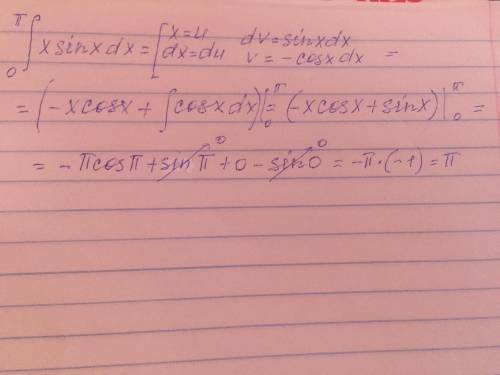 ∫₀^π x sinx dx = [x=u dv=sinxdx
dx=du v=-cosx dx =
= (-xcosx + ∫cosxdx)|₀^π = (-xcosx+sinx)|₀^π =
= -πcosπ + sinπ⁰ + 0 - sin0⁰ = -π·(-1) = π